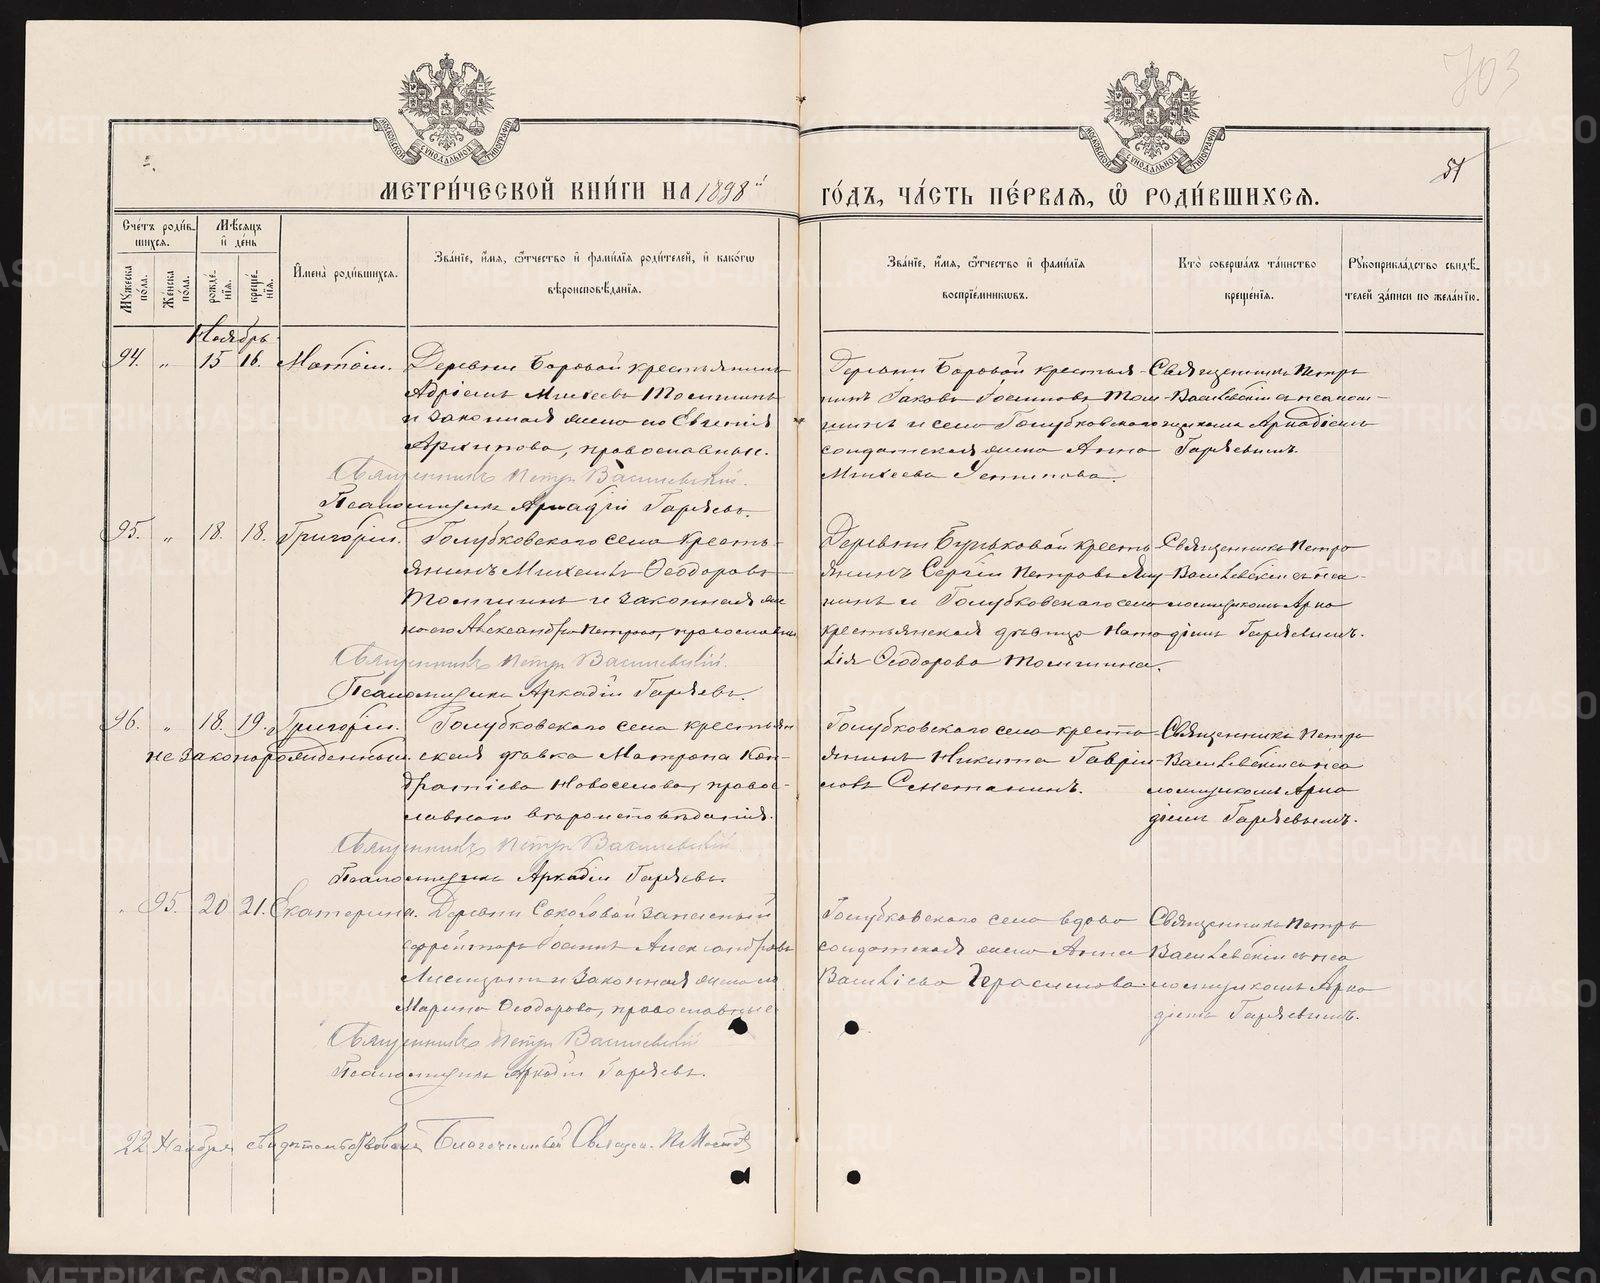 703
51
МОСКОВСКОЙ СѴНОДАЛЬНОЙ ТИПОГРАФІИ
МОСКОВСКОЙ СѴНОДАЛЬНОЙ ТИПОГРАФІИ
МЕТРИ́ЧЕСКОЙ КНИ́ГИ НА 1898й ГО́ДЪ, ЧА́СТЬ ПЕ́РВАѦ, Ѡ РОДИ́ВШИХСѦ.
Сче́тъ роди́в-
шихсѧ.
Мѣ́сѧцъ
и҆ де́нь
Мꙋ́жеска по́ла.
Же́нска по́ла.
рожде́-
нїѧ.
креще́-
нїѧ.
И҆мена̀ роди́вшихсѧ.
Зва́нїе, и҆́мѧ, ѻ҆́тчество и҆ фами́лїѧ роди́телей, и҆ како́гѡ
вѣроисповѣ́данїѧ.
Зва́нїе, и҆́мѧ, ѻ҆́тчество и҆ фами́лїѧ
воспрїе́мникѡвъ.
Кто̀ соверша́лъ та́инство
креще́нїѧ.
Рꙋкоприкла́дство свидѣ́-
телей за́писи по жела́нїю.
Ноябрь
94. „ 15 16. Матѳій. Деревни Боровой крестьянинъ
Адріанъ Михеевъ Томшинъ
и законная жена его Евгенія
Архипова, православные.
Священникъ Петръ Василевскій.
Псаломщикъ Аркадій Гаряевъ.
Деревни Боровой крестья-
нинъ Іаковъ Іосифовъ Том-
шинъ и села Голубковскаго
солдатская жена Анна
Михеева Устинова.
Священникъ Петръ
Василевскій съ псалом-
щикомъ Аркадіемъ
Гаряевымъ.
95. „ 18. 18. Григорій. Голубковскаго села кресть-
янинъ Михаилъ Ѳеодоровъ
Томшинъ и законная же-
на его Александра Петрова, православные
Священникъ Петръ Василевскій.
Псаломщикъ Аркадій Гаряевъ.
Деревни Бучковой кресть-
янинъ Сергій Петровъ Яку-
нинъ и Голубковскаго села
крестьянская дѣвица Ната-
лія Ѳеодорова Томшина.
Священникъ Петръ
Василевскій съ пса-
ломщикомъ Арка-
діемъ Гаряевымъ.
96. „ 18. 19. Григорій. Голубковскаго села крестьян
незаконорожденный. ская дѣвка Матрона Кон-
дратіева Новоселова, право-
славнаго вѣроисповѣданія.
Священникъ Петръ Василевскій
Псаломщикъ Аркадій Гаряевъ.
Голубковскаго села кресть-
янинъ Никита Гаврии-
ловъ Сметанинъ.
Священникъ Петръ
Василевскій съ пса
ломщикомъ Арка
діемъ Гаряевымъ.
„ 95. 20 21. Екатерина. Деревни Соколовой запасный
ефрейторъ Іоаннъ Александровъ
Лисицынъ и законная жена его
Марина Ѳеодорова, православные
Священникъ Петръ Василевскій
Псаломщикъ Аркадій Гаряевъ.
Голубковскаго села вдова
солдатская жена Анна
Василіева Герасимова
Священникъ Петръ
Василевскій съ пса
ломщикомъ Арка
діемъ Гаряевымъ.
22 Ноября свидѣтельствовалъ Благочинный Священ.